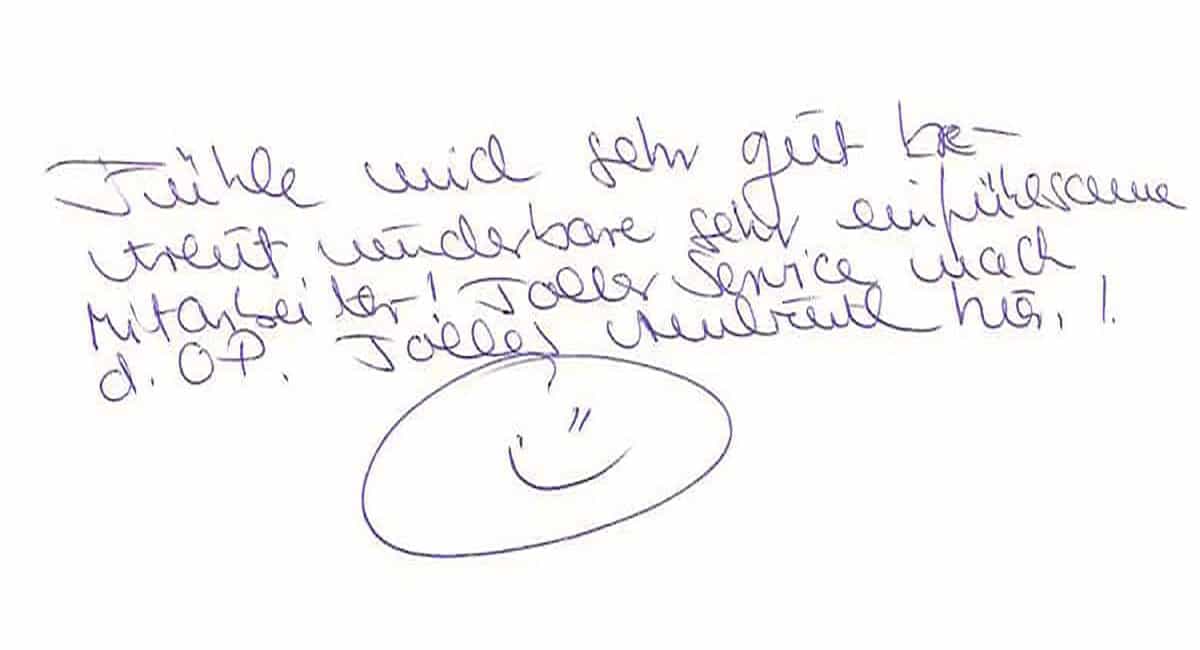 Fühle mich sehr gut be-
treut, wunderbare sehr einfühlsame
Mitarbeiter! Toller Service nach
d. OP. Tolles hier!